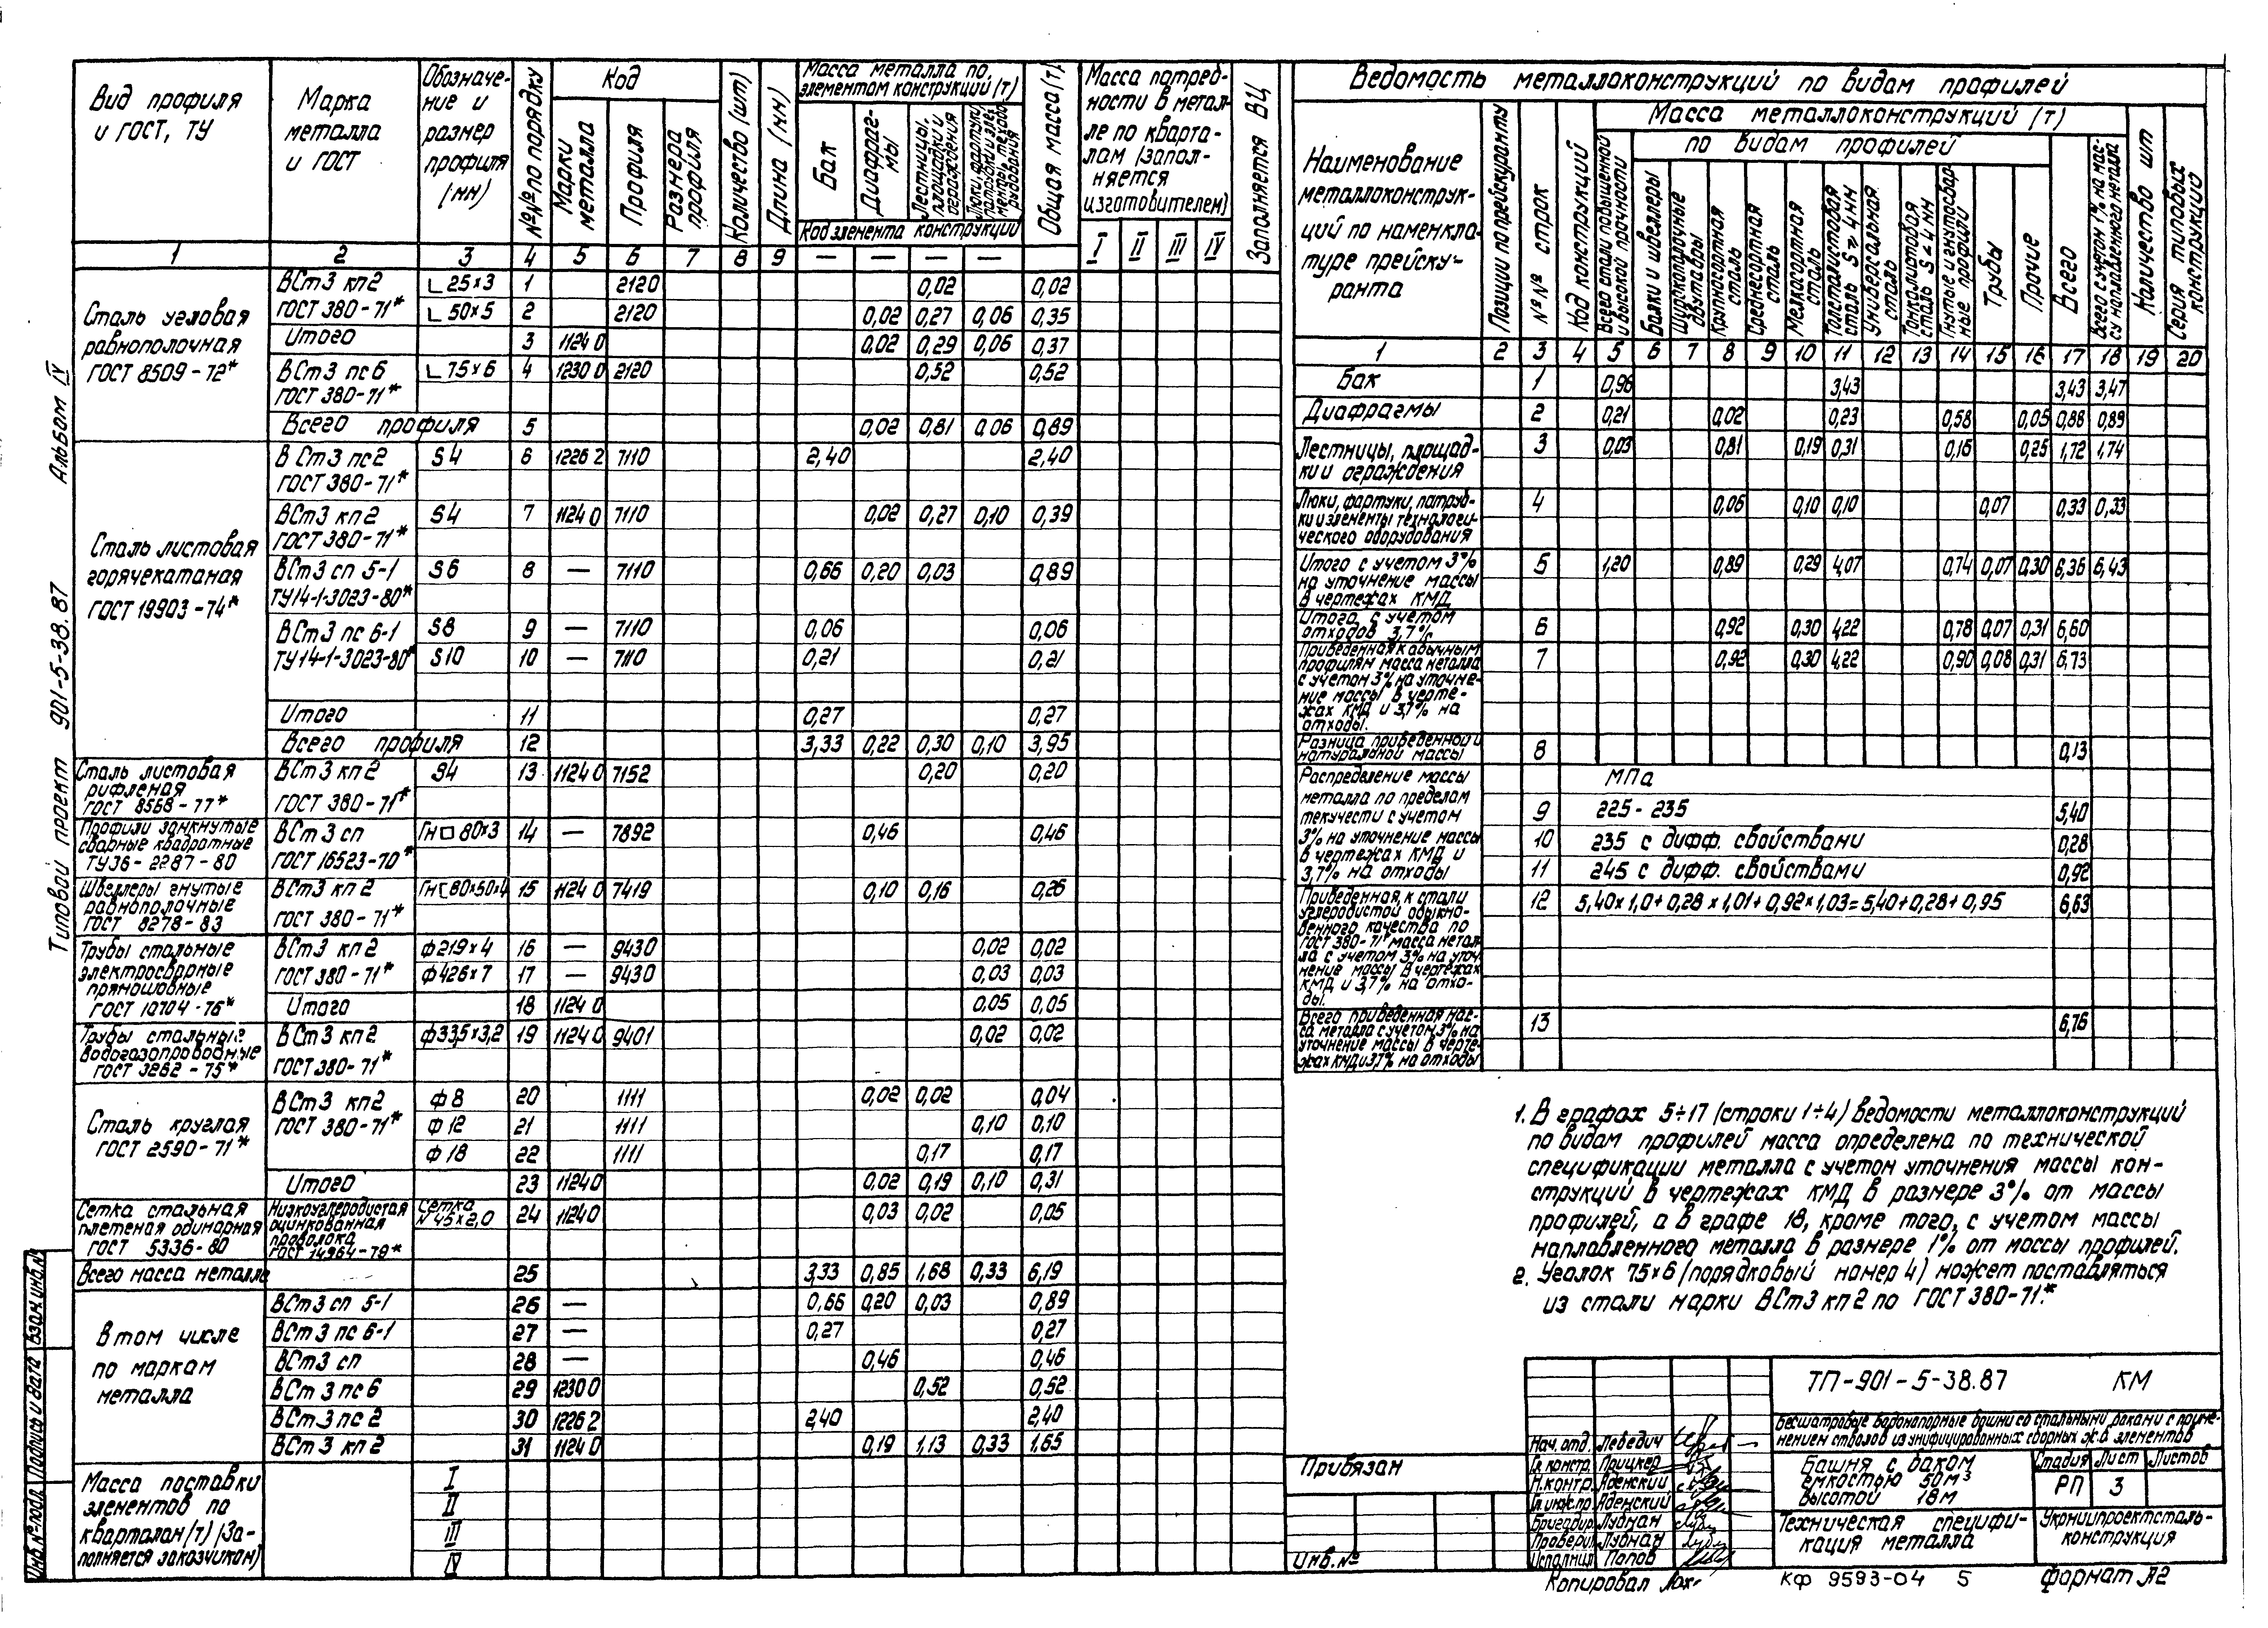 Альбом IV
Типовой проект 901-5-38.87
Вид профиля и ГОСТ, ТУ
Марка металла и ГОСТ
Обозначение и размер профиля (мм)
№№ по порядку
Код
Марки металла
Профиля
Размера профиля
Количество (шт)
Длина (мм)
Масса металла по элементам конструкций (т)
Бак
Диафрагмы
Лестницы, площадки и ограждения
Код элемента конструкций
Общая масса (т)
Масса потребности в металле по кварталам (заполняется изготовителем)
I II III IV
Заполняется ВЦ
1 2 3 4 5 6 7 8 9 — — — —
Сталь угловая равнополочная ГОСТ 8509-72*
ВСт3 кп2 ГОСТ 380-71*
∟25×3 1 2120 0,02 0,02
∟50×5 2 2120 0,02 0,27 0,06 0,35
Итого 3 11240 0,02 0,29 0,06 0,37
ВСт3 пс6 ГОСТ 380-71* ∟75×6 4 12300 2120 0,52 0,52
Всего профиля 5 0,02 0,81 0,06 0,89
Сталь листовая горячекатаная ГОСТ 19903-74*
ВСт3 пс2 ГОСТ 380-71* S4 6 12262 7110 2,40 2,40
ВСт3 кп2 ГОСТ 380-71* S4 7 11240 7110 0,02 0,27 0,10 0,39
ВСт3 сп 5-1 ТУ14-1-3023-80* S6 8 — 7110 0,66 0,20 0,03 0,89
ВСт3 пс 6-1 ТУ14-1-3023-80*
S8 9 — 7110 0,06 0,06
S10 10 — 7110 0,21 0,21
Итого 11 0,27 0,27
Всего профиля 12 3,33 0,22 0,30 0,10 3,95
Сталь листовая рифленая ГОСТ 8568-77*
ВСт3 кп2 ГОСТ 380-71* S4 13 11240 7152 0,20 0,20
Профили замкнутые сварные квадратные ТУ36-2287-80
ВСт3 сп ГОСТ 16523-70* Гн□80×3 14 — 7892 0,46 0,46
Швеллеры гнутые равнополочные ГОСТ 8278-83
ВСт3 кп2 ГОСТ 380-71* Гн[80×50×4 15 11240 7419 0,10 0,16 0,26
Трубы стальные электросварные прямошовные ГОСТ 10704-76*
ВСт3 кп2 ГОСТ 380-71*
ф219×4 16 — 9430 0,02 0,02
ф426×7 17 — 9430 0,03 0,03
Итого 18 11240 0,05 0,05
Трубы стальные водогазопроводные ГОСТ 3262-75*
ВСт3 кп2 ГОСТ 380-71* ф33,5×3,2 19 11240 9401 0,02 0,02
Сталь круглая ГОСТ 2590-71*
ВСт3 кп2 ГОСТ 380-71*
ф8 20 1111 0,02 0,02 0,04
ф12 21 1111 0,10 0,10
ф18 22 1111 0,17 0,17
Итого 23 11240 0,02 0,19 0,10 0,31
Сетка стальная плетеная одинарная ГОСТ 5336-80
Низкоуглеродистая оцинкованная проволока
Сетка N 45×2,0 24 11240 0,03 0,02 0,05
Всего масса металла 25 3,33 0,85 1,68 0,33 6,19
В том числе по маркам металла
ВСт3 сп 5-1 26 — 0,66 0,20 0,03 0,89
ВСт3 пс 6-1 27 — 0,27 0,27
ВСт3 сп 28 — 0,46 0,46
ВСт3 пс6 29 12300 0,52 0,52
ВСт3 пс2 30 12262 2,40 2,40
ВСт3 кп2 31 11240 0,19 1,13 0,33 1,65
Масса поставки элементов по кварталам (т) (Заполняется заказчиком)
I
II
III
IV
Инв.№подл. Подпись и дата Взам.инв.№
Ведомость металлоконструкций по видам профилей
Наименование металлоконструкций по номенклатуре прейскуранта
Позиции по прейскуранту
№№ строк
Код конструкций
Масса металлоконструкций (т)
Всего стали повышенной и высокой прочности
по видам профилей
Балки и швеллеры
Широкополочные двутавры
Крупносортная сталь
Среднесортная сталь
Мелкосортная сталь
Толстолистовая сталь S ≥ 4 мм
Универсальная сталь
Тонколистовая сталь S ≤ 4 мм
Гнутые и гнутосварные профили
Трубы
Прочие
Всего
Всего с учетом 1% на массу наплавленного металла
Количество шт
Серия типовых конструкций
1 2 3 4 5 6 7 8 9 10 11 12 13 14 15 16 17 18 19 20
Бак 1 0,96 3,43 3,43 3,47
Диафрагмы 2 0,21 0,02 0,23 0,58 0,05 0,88 0,89
Лестницы, площадки и ограждения 3 0,03 0,81 0,19 0,31 0,16 0,25 1,72 1,74
Люки, фартуки, патрубки и элементы технологического оборудования 4 0,06 0,10 0,10 0,07 0,33 0,33
Итого с учетом 3% на уточнение массы в чертежах КМД 5 1,20 0,89 0,29 4,07 0,74 0,07 0,30 6,36 6,43
Итого с учетом отходов 3,7% 6 0,92 0,30 4,22 0,78 0,07 0,31 6,60
Приведенная к обычным профилям масса металла с учетом 3% на уточнение массы в чертежах КМД и 3,7% на отходы. 7 0,92 0,30 4,22 0,90 0,08 0,31 6,73
Разница приведенной и натуральной массы 8 0,13
Распределение массы металла по пределам текучести с учетом 3% на уточнение массы в чертежах КМД и 3,7% на отходы
МПа
9 225-235 5,40
10 235 с дифф. свойствами 0,28
11 245 с дифф. свойствами 0,92
Приведенная к стали углеродистой обыкновенного качества по ГОСТ 380-71* масса металла с учетом 3% на уточнение массы в чертежах КМД и 3,7% на отходы.
12 5,40×1,0+0,28×1,01+0,92×1,03=5,40+0,28+0,95 6,63
Всего приведенная масса металла с учетом 3% на уточнение массы в чертежах КМД и 3,7% на отходы 13 6,76
1. В графах 5÷17 (строки 1÷4) ведомости металлоконструкций
по видам профилей масса определена по технической
спецификации металла с учетом уточнения массы кон-
струкций в чертежах КМД в размере 3% от массы
профилей, а в графе 18, кроме того, с учетом массы
наплавленного металла в размере 1% от массы профилей.
2. Уголок 75×6 (порядковый номер 4) может поставляться
из стали марки ВСт3 кп2 по ГОСТ 380-71.*
Привязан
Инв.№
Нач. отд. Лебедич
Гл. констр. Прицкер
Н.контр. Аденский
Гл.инж.пр. Аденский
Бригадир Лудман
Проверил Лудман
Исполнил Попов
ТП-901-5-38.87 КМ
Бесшатровые водонапорные башни со стальными баками с приме-
нением стволов из унифицированных сборных ж.б. элементов
Башня с баком
емкостью 50м³
высотой 18м
Стадия Лист Листов
РП 3
Техническая специфи-
кация металла
Укрниипроектсталь-
конструкция
Копировал
КФ 9593-04 5
формат А2